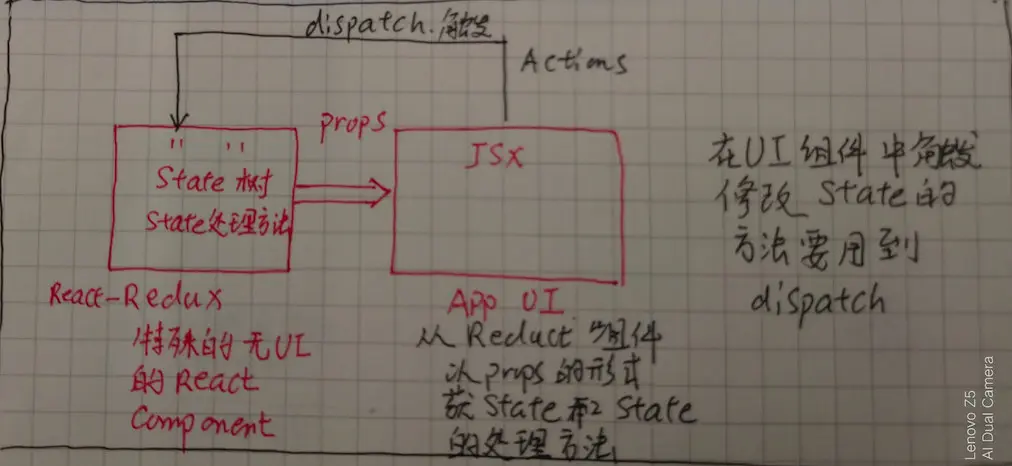 dispatch.触发
Actions
props
" "
State 树
State处理方法
JSX
React-Redux
特殊的无UI
的React
Component
App UI
从Reduct 组件
以props的形式
获State和State
的处理方法
在UI组件中触发
修改State的
方法要用到
dispatch
Lenovo Z5
AI Dual Camera